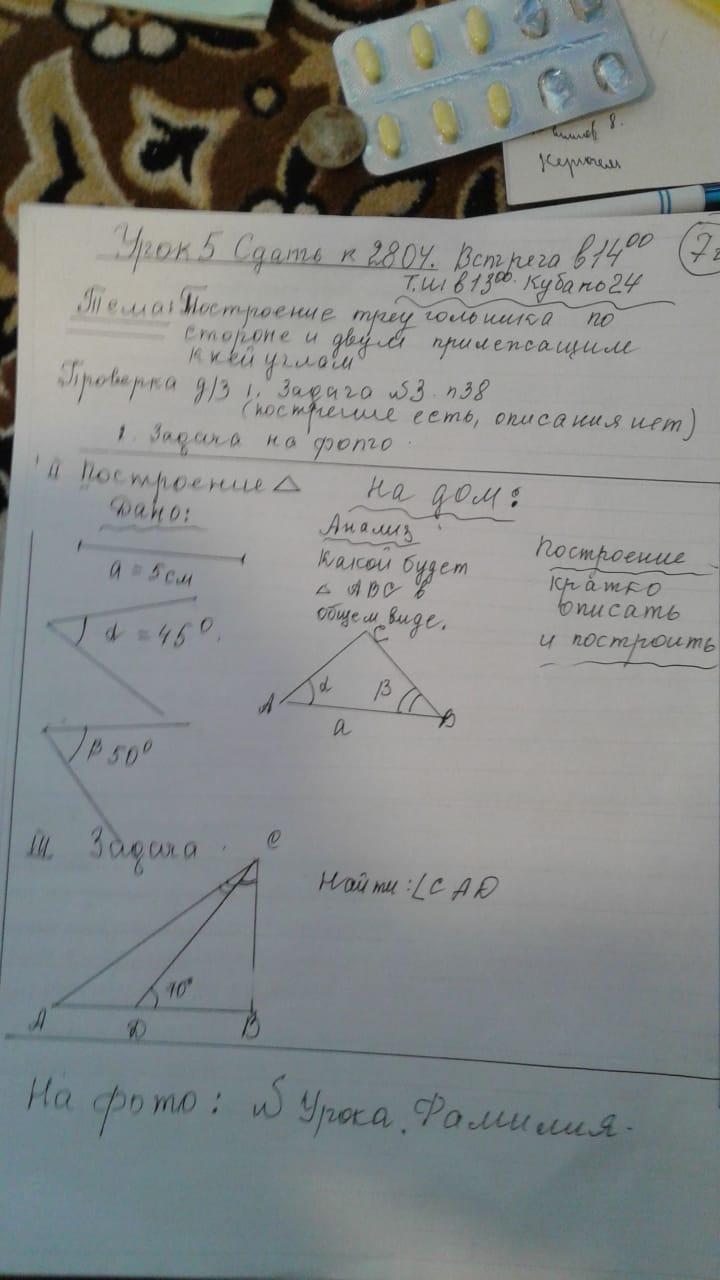 8.
Керчем
Урок 5 Сдать к 28 04. Встреча в 14⁰⁰
7г
т.ш в 13⁰⁰. Кубапо 24
Тема: Построение треугольника по
стороне и двум прилежащим
к ней углам
Проверка д/з 1. Задача №3. п38
(построение есть, описания нет)
1. Задача на фото.
II Построение △ На дом:
Дано:
a = 5 см
α = 45°.
β 50°
Анализ
Какой будет
△ ABC в
общем виде.
C
A α β B
a
Построение
кратко
описать
и построить
III. Задача.
C
70°
A D B
Найти: ∠CAD
На фото: № Урока. Фамилия.